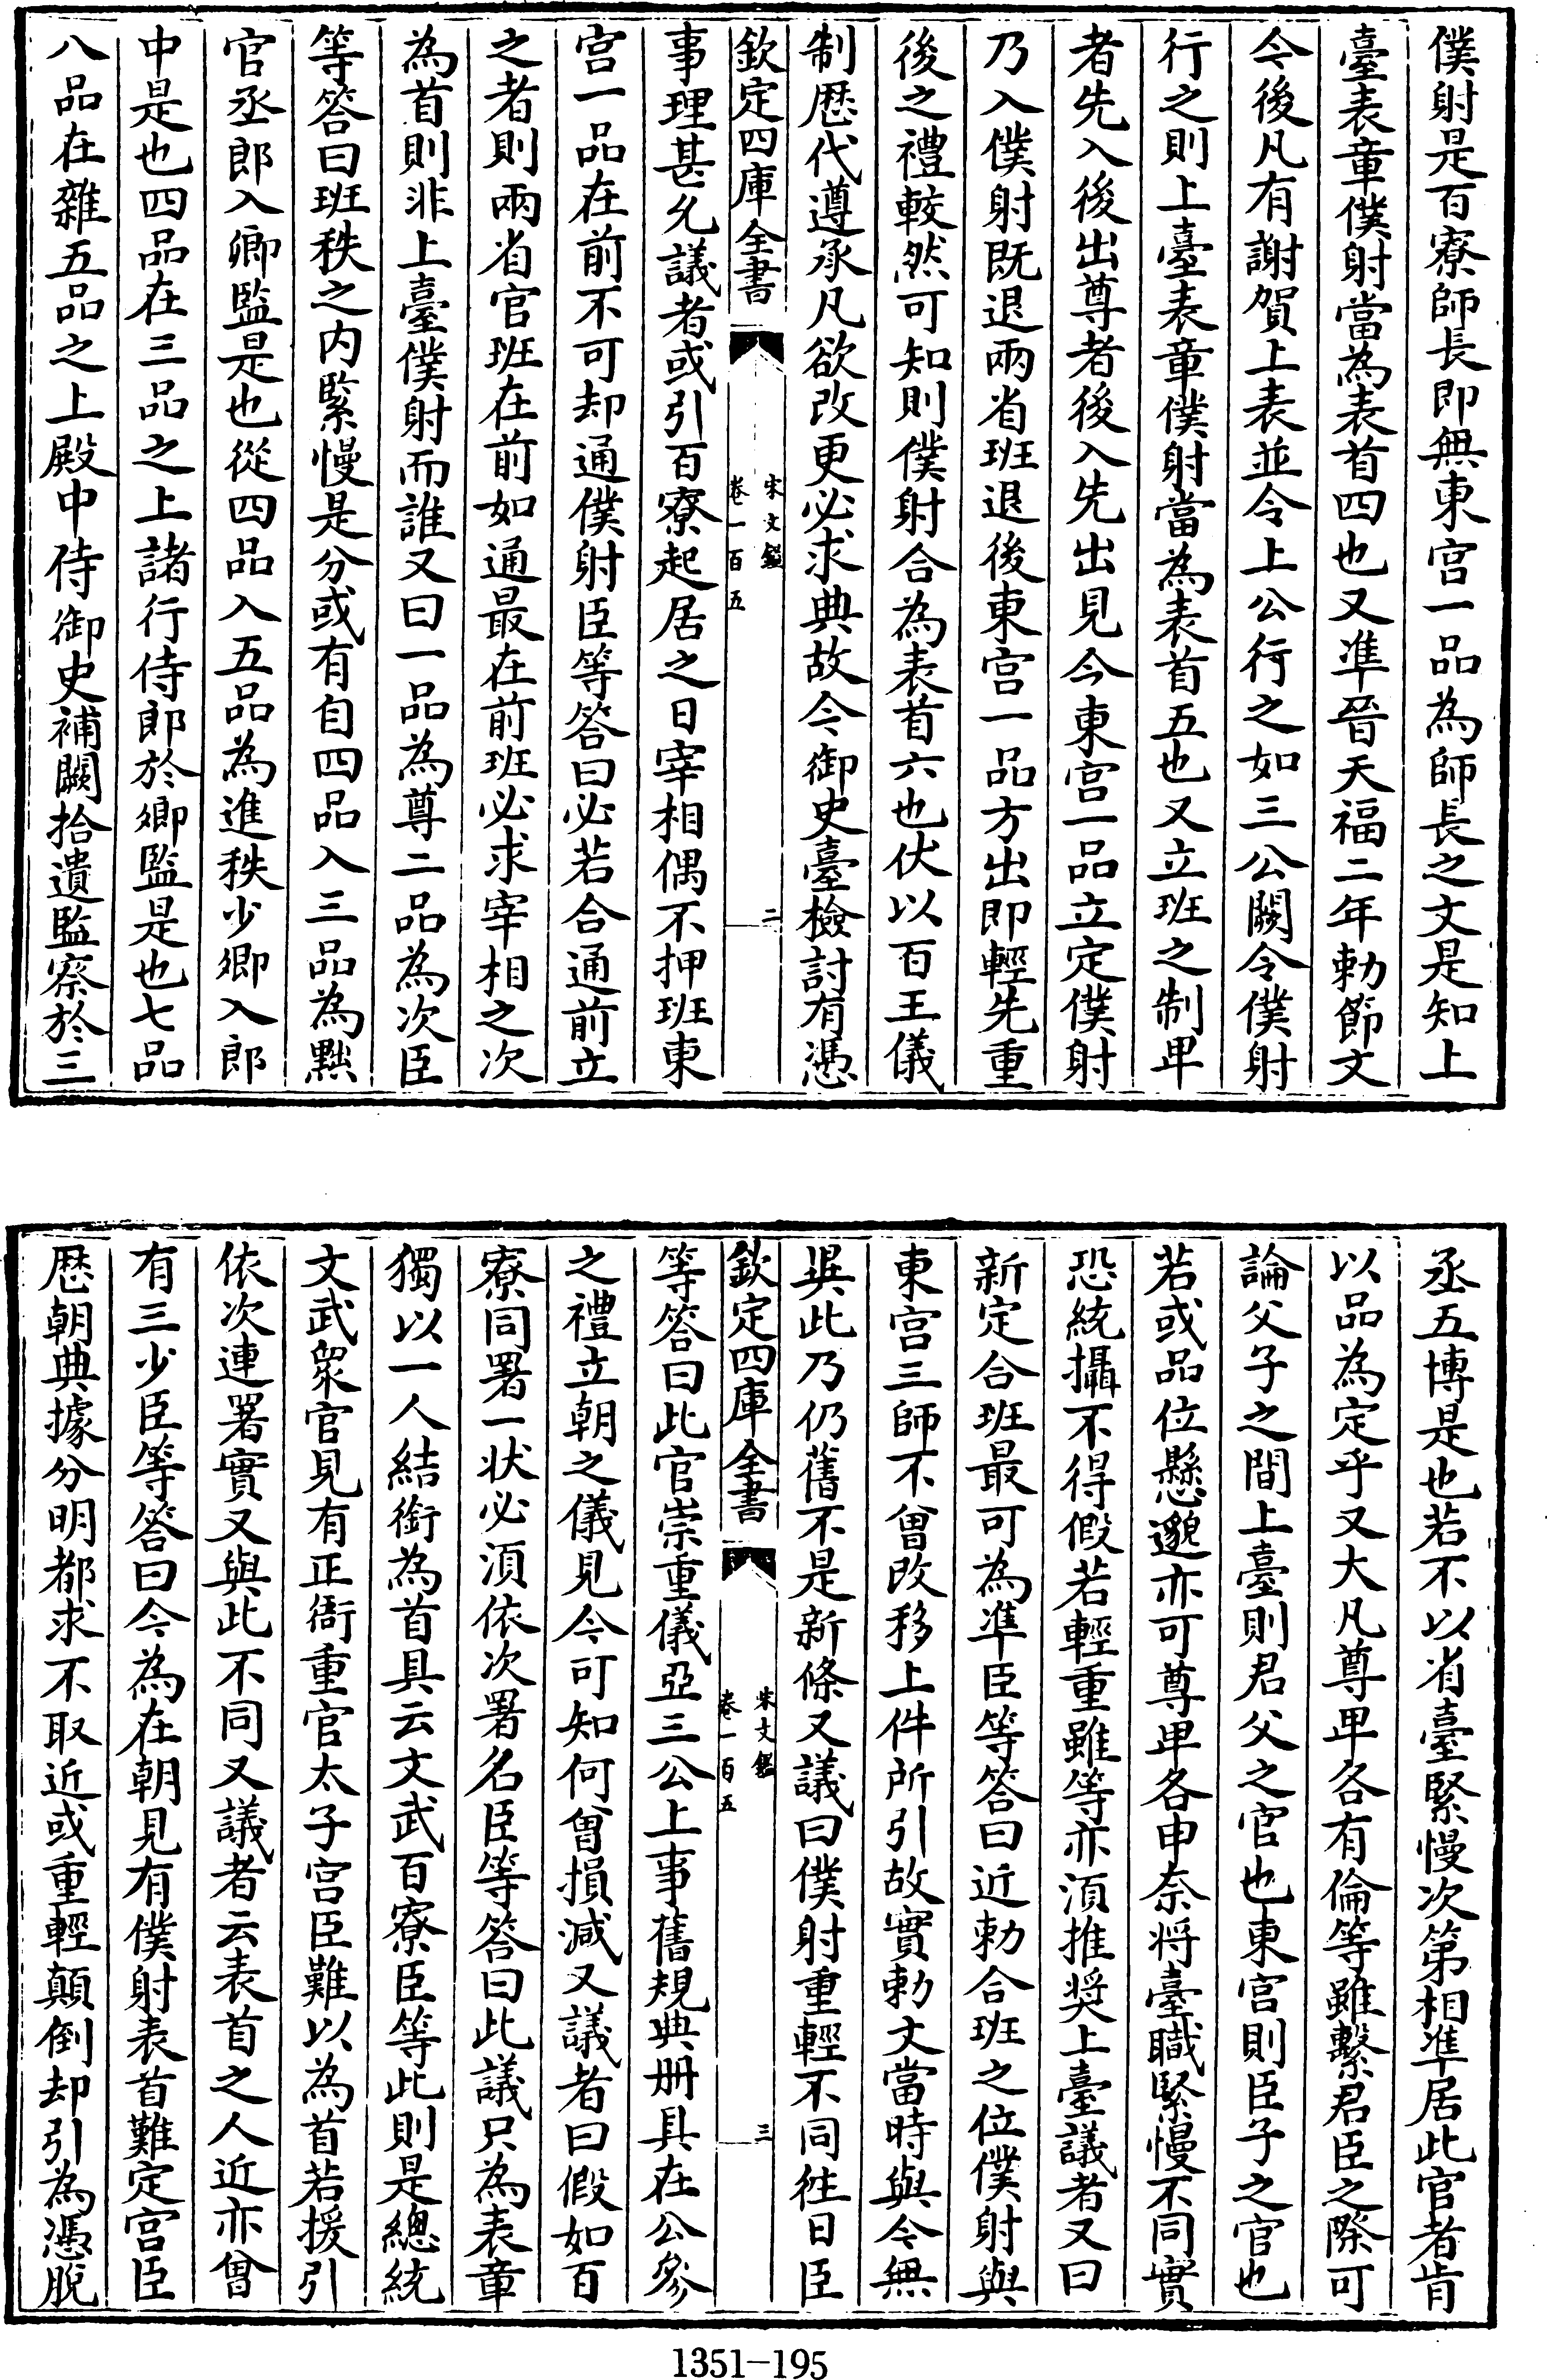 僕射是百寮師長即無東宫一品為師長之文是知上
臺表章僕射當為表首四也又準晉天福二年勅節文
今後凡有謝賀上表並令上公行之如三公闕令僕射
行之則上臺表章僕射當為表首五也又立班之制卑
者先入後出尊者後入先出見今東宫一品立定僕射
乃入僕射既退兩省班退後東宫一品方出即輕先重
後之禮較然可知則僕射合為表首六也伏以百王儀
制歴代遵承凡欲改更必求典故今御史臺檢討有憑
欽定四庫全書
宋文鑑
卷一百五
二
事理甚允議者或引百寮起居之日宰相偶不押班東
宫一品在前不可却通僕射臣等答曰必若合通前立
之者則兩省官班在前如通最在前班必求宰相之次
為首則非上臺僕射而誰又曰一品為尊二品為次臣
等答曰班秩之内緊慢是分或有自四品入三品為黜
官丞郎入卿監是也從四品入五品為進秩少卿入郎
中是也四品在三品之上諸行侍郎於卿監是也七品
八品在雜五品之上殿中侍御史補闕拾遺監察於三
丞五博是也若不以省臺緊慢次第相準居此官者肯
以品為定乎又大凡尊卑各有倫等雖繫君臣之際可
論父子之間上臺則君父之官也東宫則臣子之官也
若或品位懸邈亦可尊卑各申奈將臺職緊慢不同實
恐統攝不得假若輕重雖等亦須推奬上臺議者又曰
新定合班最可為準臣等答曰近勅合班之位僕射與
東宫三師不曾改移上件所引故實勅文當時與今無
異此乃仍舊不是新條又議曰僕射重輕不同徃日臣
欽定四庫全書
宋文鑑
卷一百五
三
等答曰此官崇重儀亞三公上事舊規典册具在公參
之禮立朝之儀見今可知何曾損減又議者曰假如百
寮同署一状必須依次署名臣等答曰此議只為表章
獨以一人結銜為首具云文武百寮臣等此則是總統
文武衆官見有正衙重官太子宫臣難以為首若援引
依次連署實又與此不同又議者云表首之人近亦曾
有三少臣等答曰今為在朝見有僕射表首難定宫臣
歴朝典據分明都求不取近或重輕顛倒却引為憑脫
1351-195